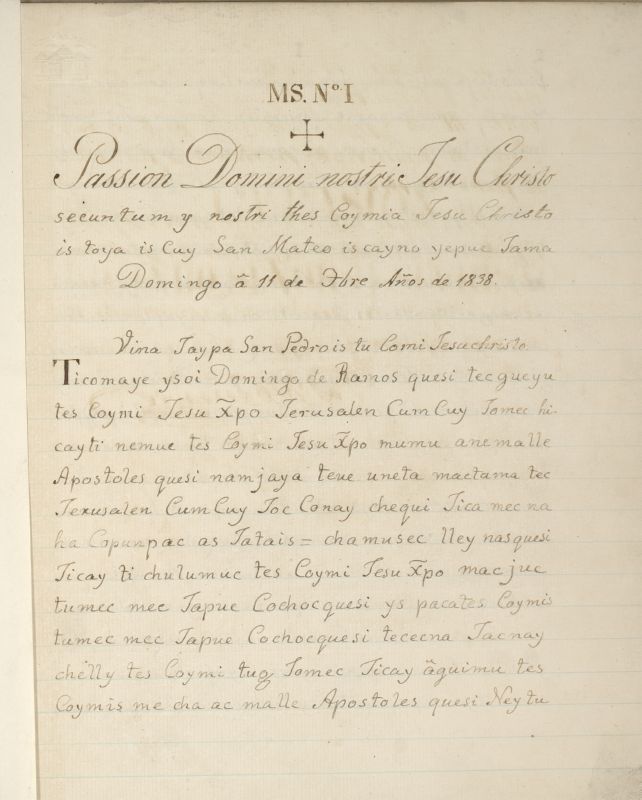 MS. Nº I
Passion Domini nostri Jesu Christo
secuntum y nostri thes Coymia Jesu Christo
is toya is Cuy San Mateo is cayno yepue Tama
Domingo â 11 de Ɔbre Años de 1838.
Vina Taypa San Pedro is tu Comi Jesuchristo
Ticomaye ysoi Domingo de Ramos quesi tecgueyu
tes Coymi Jesu Xp̄o Jerusalen Cum Cuy Tomec hi-
cayti nemue tes Coymi Jesu Xp̄o mumu ane malle
Apostoles quesi namjaya teue uneta mactama tec
Jerusalen Cum Cuy Toc Conay chequi Tica mec na
ha Copunpac as Tatais = chamusec lley nasquesi
Ticay ti chulumuc tes Coymi Jesu Xp̄o macjuc
tumec mec Tapue Cochocquesi ys pacates Coymis
tumec mec Tapue Cochocquesi tececna Tacnay
chelly tes Coymi tug Tomec Ticay âguimu tes
Coymis me cha ac malle Apostoles quesi Ney tu